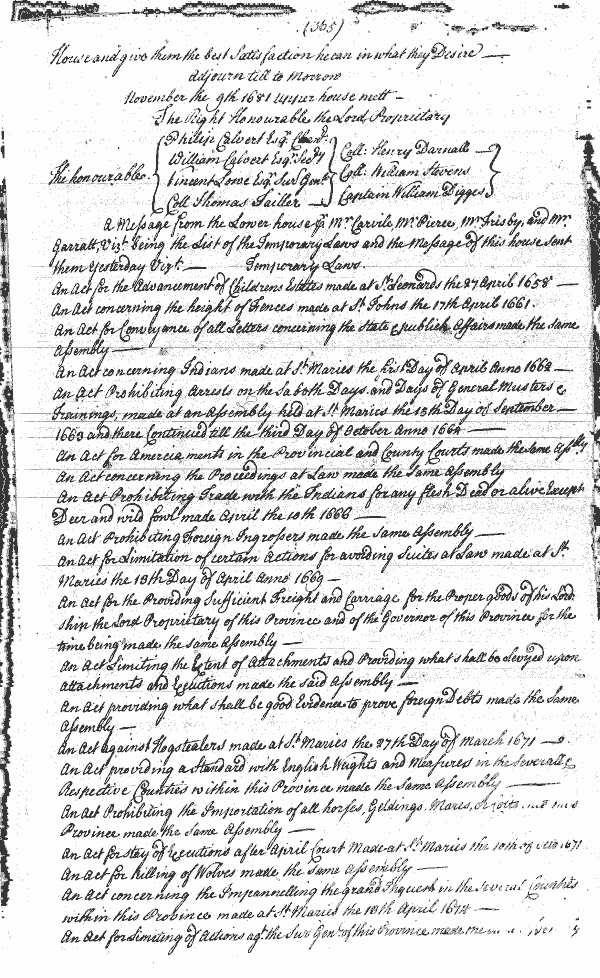 (335)
House and give them the best Sattisfaction he can in what they Desire —
adjourn till to Morrow
November the 9th 1681 upper house mett —
The Right Honourable the Lord Proprietary
The honourable.
Philip Calvert Esqr. Chanr.
William Calvert Esqr. Secry
Vincent Lowe Esqr. Survr Genll
Coll Thomas Tailler —
Coll: Henry Darnall —
Coll: William Stevens
Captain William Digges
A Message from the Lower house Mr. Carvile, Mr. Pierce, Mr. Frisby, and Mr.
Garratt, Vizt. being the List of the Temporary Laws and the Message of this house sent
them Yesterday Vizt. — Temporary Laws.
An Act for the Advancement of Childrens Estates made at St. Leonards the 27 April 1658 —
An Act concerning the height of Fences made at St. Johns the 17th April 1661.
An Act for Conveyance of all Letters concerning the State & publick Affairs made the same
Assembly —
An Act concerning Indians made at St. Maries the first Day of April Anno 1662 —
An Act Prohibiting Arrests on the Saboth Days and Days of General Musters &
Trainings, made at an Assembly held at St. Maries the 15th Day of September —
1663 and there Continued till the third Day of October Anno 1664 —
An Act for Amerciaments in the Provincial and County Courts made the same Assbly
An Act concerning the Proceedings at Law made the same Assembly
An Act Prohibiting Trade with the Indians for any flesh Dead or alive Except
Deer and wild fowl made April the 10th 1666 —
An Act Prohibiting Foreign Ingrossers made the same Assembly —
An Act for Limitation of certain Actions for avoiding Suites at Law made at St.
Maries the 18th Day of April Anno 1669 —
An Act for the Providing Sufficient Freight and Carriage for the Proper goods of his Lord
ship the Lord Proprietary of this Province and of the Governor of this Province for the
time being made the same Assembly —
An Act Limiting the Extent of Attachments and Providing what shall be Levyed upon
attachments and Executions made the said Assembly —
An Act providing what shall be good Evidence to prove foreign Debts made the Same
Assembly —
An Act against Hogstealers made at St. Maries the 27th Day of March 1671 —
An Act providing a Standard with English Weights and Measures in the Severall &
Respective Counties within this Province made the same Assembly —
An Act Prohibiting the Importation of all horses, Geldings, Mares,
Province made the same Assembly —
An Act for stay of Executions after April Court Made at St. Maries the 10th of 1671
An Act for killing of Wolves made the same Assembly —
An Act concerning the Impannelling the grand Inquest in the Several Counties
within this Province made at St. Maries the 18th April 1674 —
An Act for Limiting of Actions agt. the Survr Genl. of this Province made the